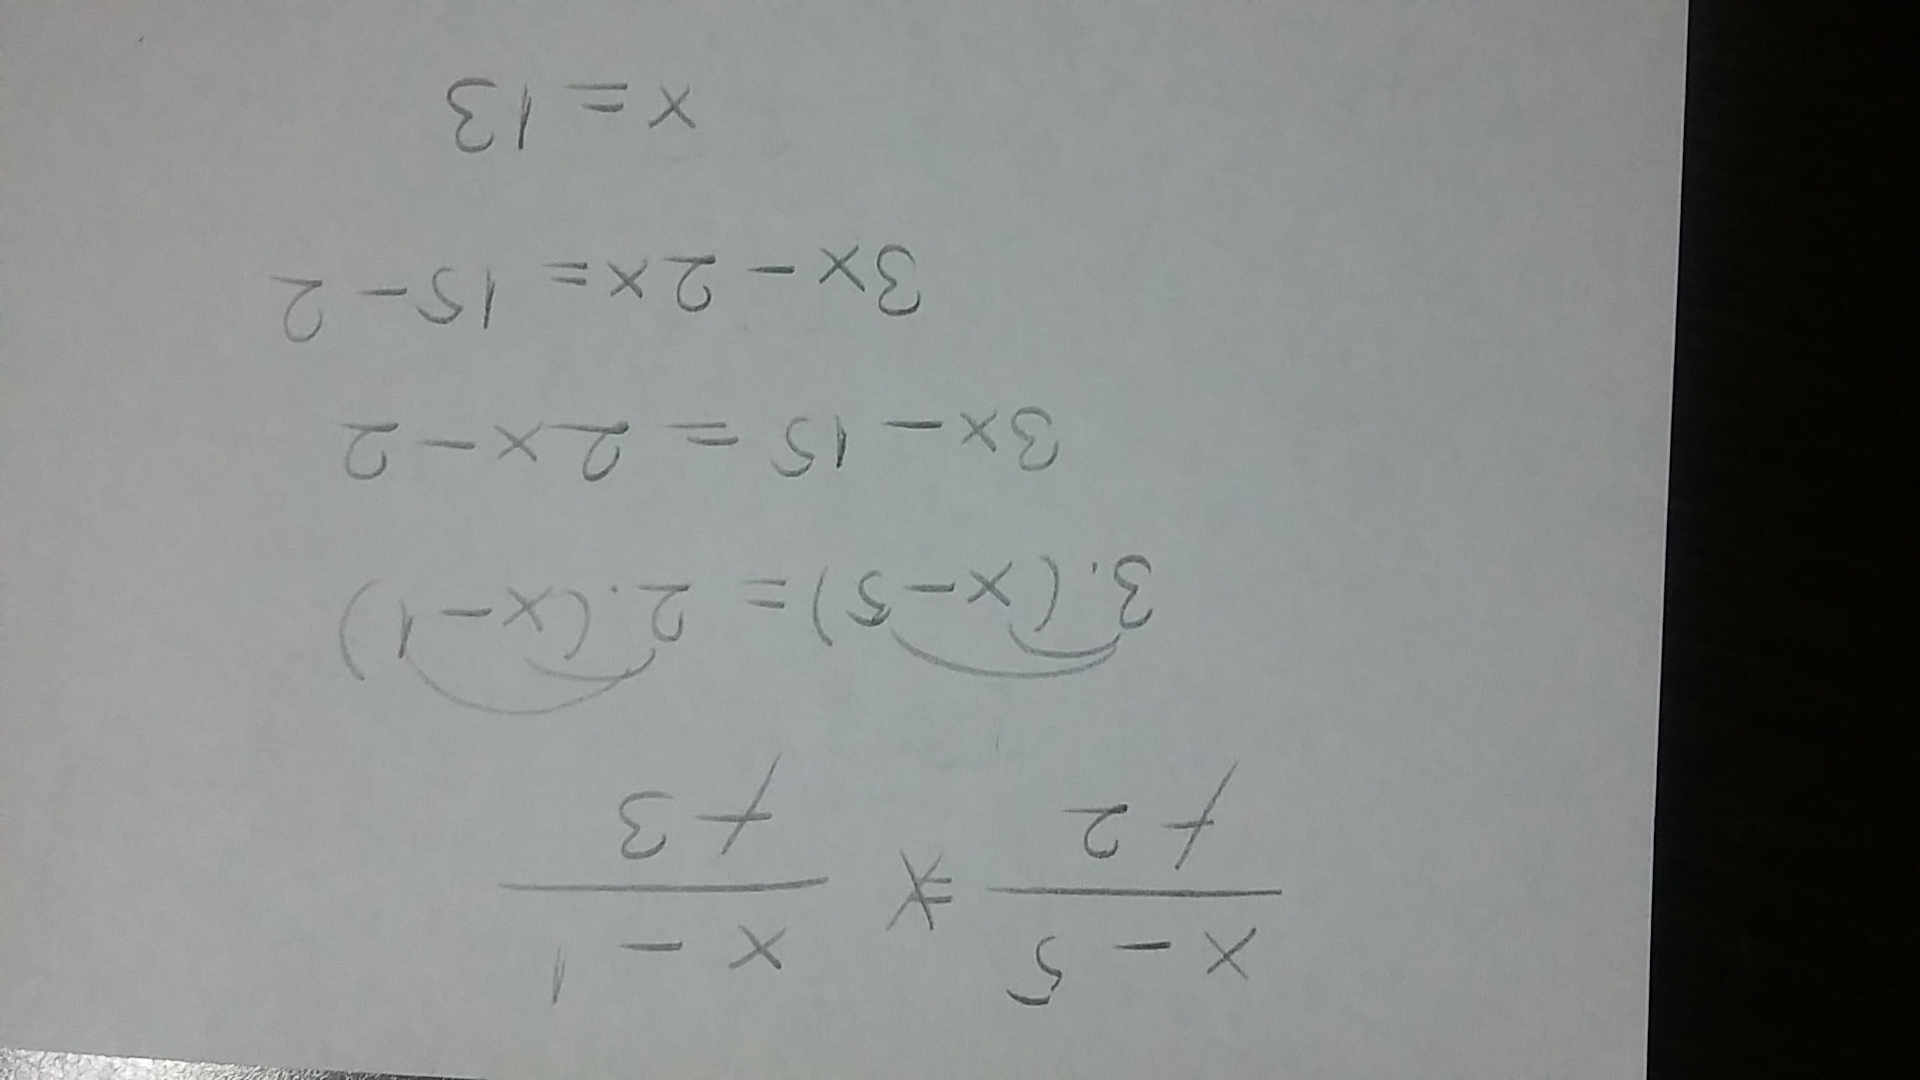 x - 5 = x - 1
-2 -3
3.(x-5) = 2.(x-1)
3x - 15 = 2x - 2
3x - 2x = 15 - 2
x = 13